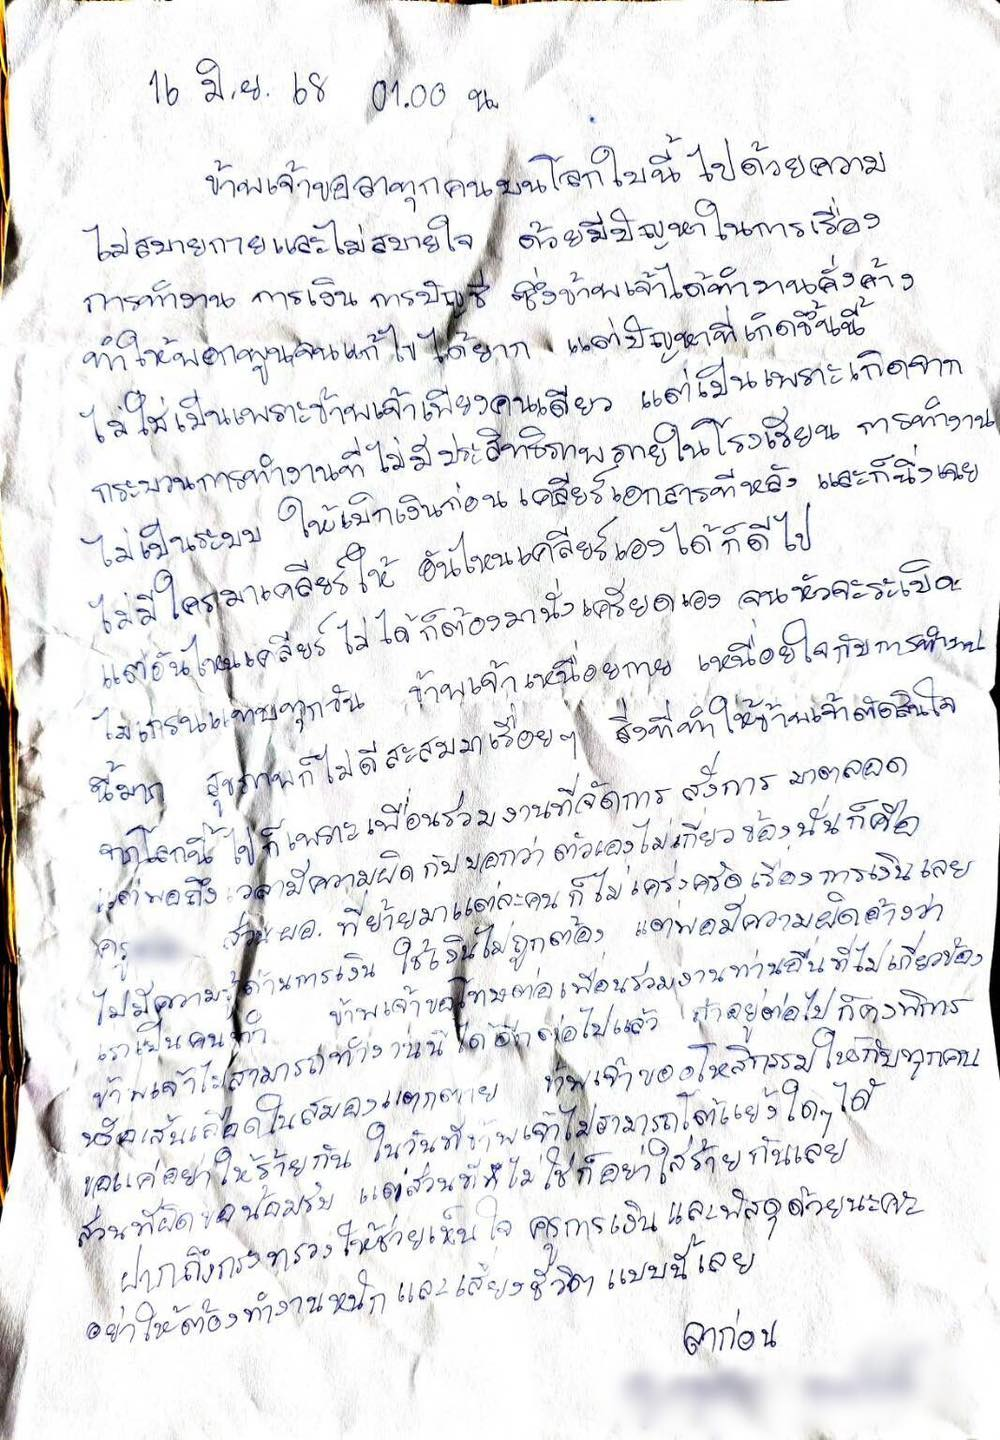 16 มิ.ย. 68 01.00 น.
ข้าพเจ้าขอลาทุกคนบนโลกใบนี้ ไปด้วยความ
ไม่สบายกายและไม่สบายใจ ด้วยมีปัญหาในการเรื่อง
การทำงาน การเงิน การบัญชี ซึ่งข้าพเจ้าได้ทำงานคั่งค้าง
ทำให้พอกพูนจนแก้ไขได้ยาก แต่ปัญหาที่เกิดขึ้นนี้
ไม่ใช่เป็นเพราะข้าพเจ้าเพียงคนเดียว แต่เป็นเพราะเกิดจาก
กระบวนการทำงานที่ไม่มีประสิทธิภาพภายในโรงเรียน การทำงาน
ไม่เป็นระบบ ให้เบิกเงินก่อน เคลียร์เอกสารทีหลัง และก็นิ่งเฉย
ไม่มีใครมาเคลียร์ให้ อันไหนเคลียร์เองได้ก็ดีไป
แต่อันไหนเคลียร์ไม่ได้ก็ต้องมานั่งเครียดเอง จนหัวจะระเบิด
ไมเกรนแทบทุกวัน ข้าพเจ้าเหนื่อยกาย เหนื่อยใจกับการทำงาน
นี้มาก สุขภาพก็ไม่ดีสะสมมาเรื่อยๆ สิ่งที่ทำให้ข้าพเจ้าตัดสินใจ
จากโลกนี้ไปก็เพราะเพื่อนร่วมงานที่จัดการ สั่งการ มาตลอด
แต่พอถึงเวลามีความผิดกับบอกว่า ตัวเองไม่เกี่ยวข้องนั่นก็คือ
ครู ส่วน ผอ. ที่ย้ายมาแต่ละคนก็ไม่เคร่งครัดเรื่องการเงินเลย
ไม่มีความรู้ด้านการเงิน ใช้เงินไม่ถูกต้อง แต่พอมีความผิดอ้างว่า
เราเป็นคนทำ ข้าพเจ้าขอโทษต่อเพื่อนร่วมงานท่านอื่นที่ไม่เกี่ยวข้อง
ข้าพเจ้าไม่สามารถทำงานนี้ได้อีกต่อไปแล้ว ถ้าอยู่ต่อไปก็คงพิการ
หรือเส้นเลือดในสมองแตกตาย ข้าพเจ้าขออโหสิกรรมให้กับทุกคน
ขอแค่อย่าให้ร้ายกัน ในวันที่ข้าพเจ้าไม่สามารถโต้แย้งใดๆได้
ส่วนที่ผิดขอน้อมรับ แต่ส่วนที่ไม่ใช่ก็อย่าใส่ร้ายกันเลย
ฝากถึงกระทรวงให้ช่วยเห็นใจ ครูการเงินและพัสดุด้วยนะคะ
อย่าให้ต้องทำงานหนักและเสี่ยงชีวิต แบบนี้เลย
ลาก่อน